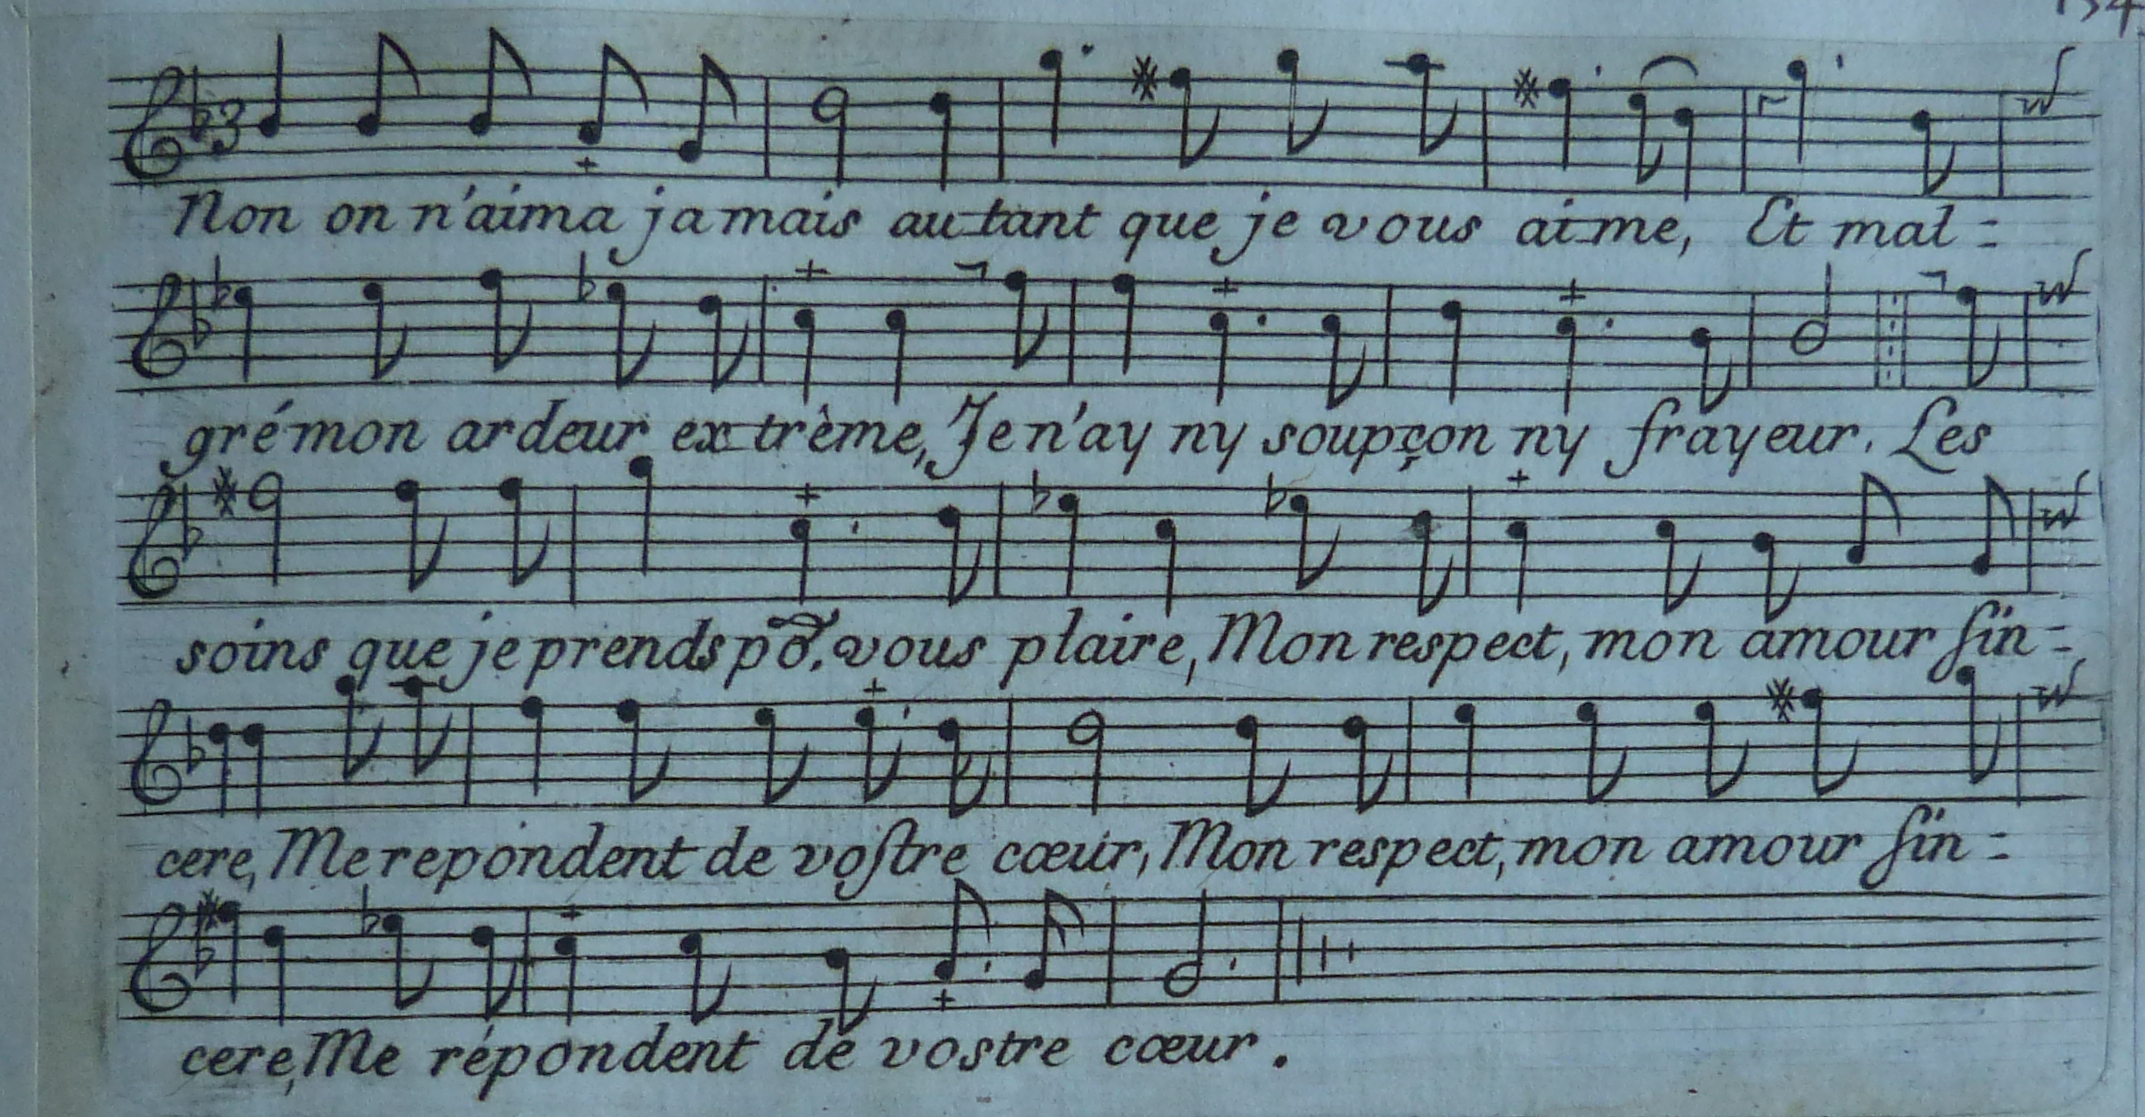 134
3
Non on n'aima jamais autant que je vous aime, Et mal=
gré mon ardeur extrème, Je n'ay ny soupçon ny frayeur. Les
soins que je prends po.r vous plaire, Mon respect, mon amour sin=
cere, Me repondent de vostre cœur, Mon respect, mon amour sin=
cere, Me répondent de vostre cœur.